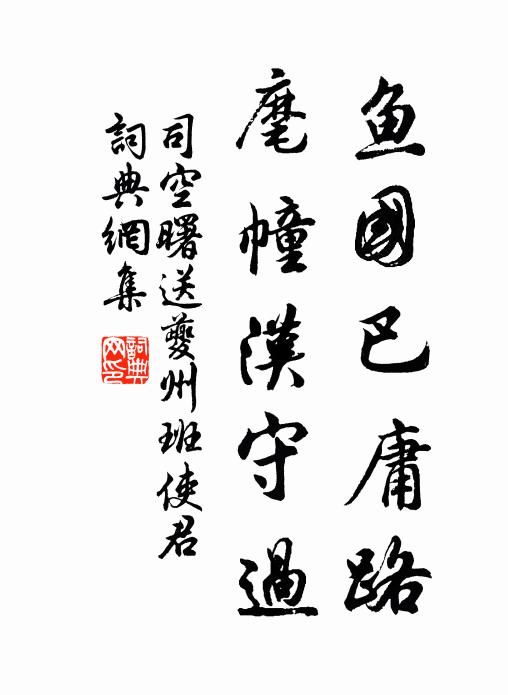 魚國巴庸路
麾幢漢守過
司空曙送夔州班使君
詞典網集
詞典網印